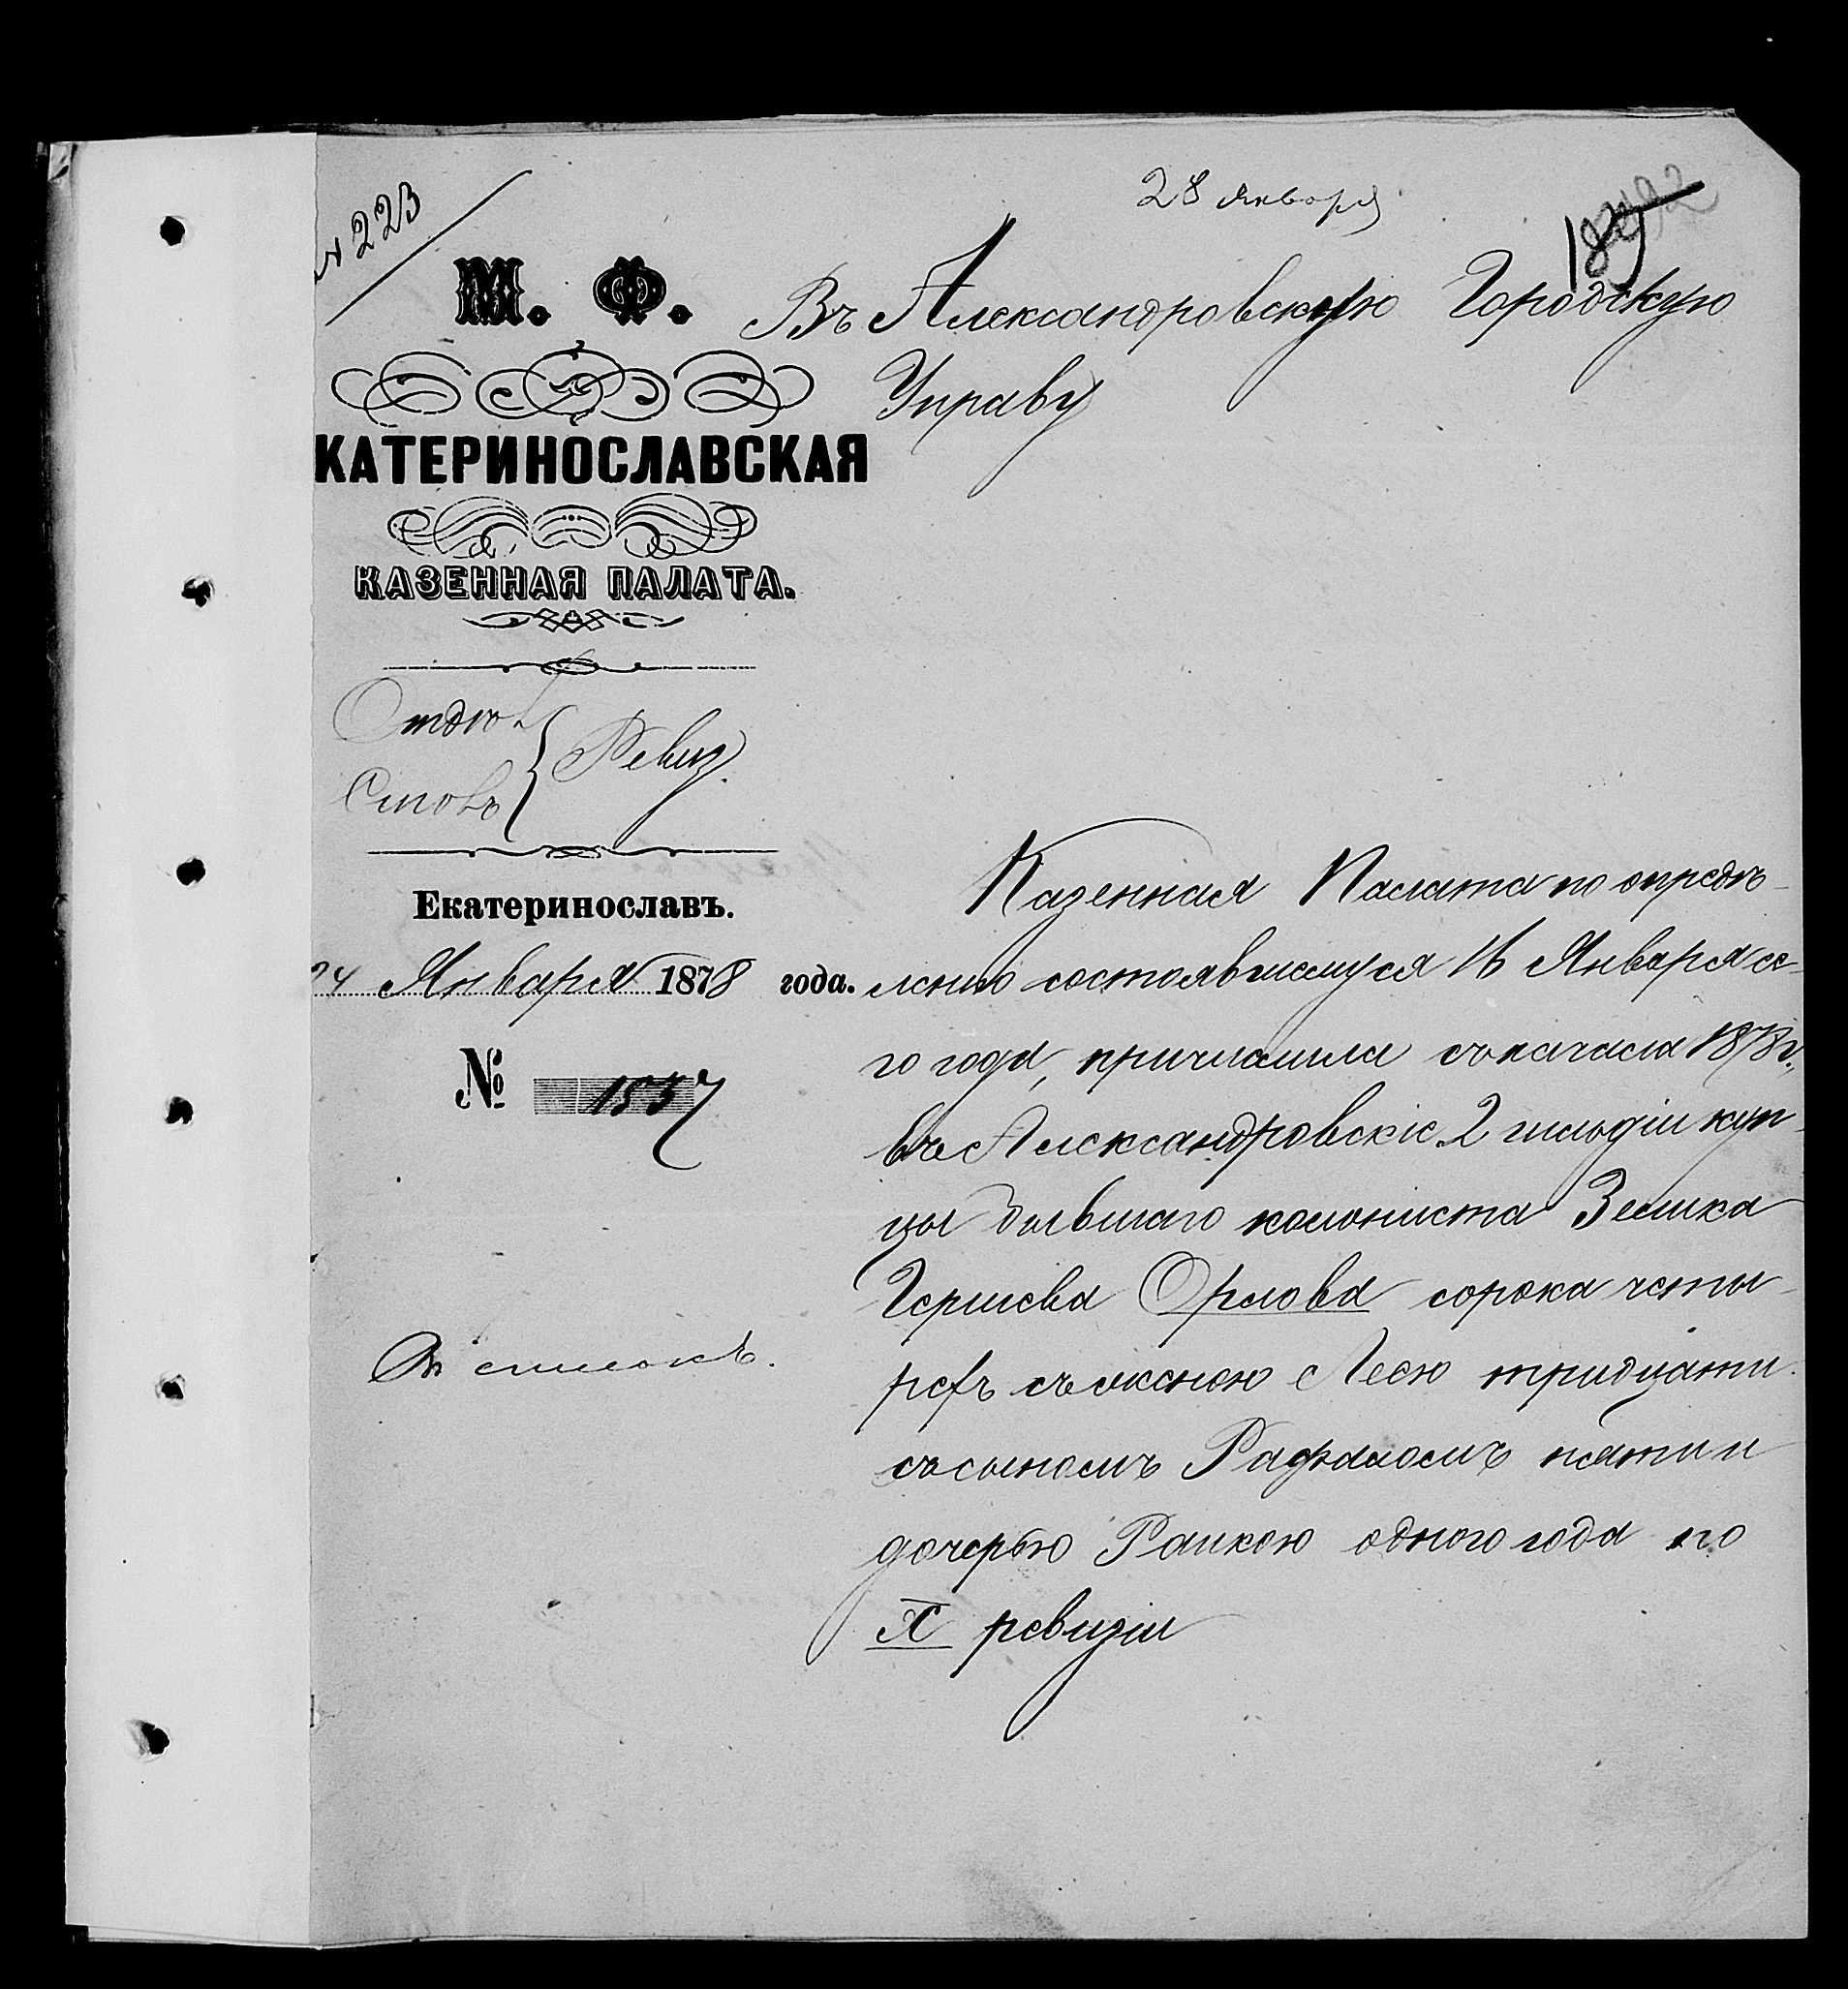 28 января
№ 223
М. Ф.
Въ Александровскую Городскую
Управу
КАТЕРИНОСЛАВСКАЯ
КАЗЕННАЯ ПАЛАТА.
Отдѣл
Столъ
Ревиз.
Екатеринославъ.
24 Января 1878 года.
№ 1537
Въ списокъ.
Казенная Палата по опредѣ-
ленію состоявшемуся 16 Января се-
го года, причислила съ начала 1878 г.,
въ Александровскіе 2 гильдіи куп-
цы бывшаго колониста Зелика
Гершева Орлова сорока четы-
рехъ съ женою Леею тридцати
съ сыномъ Рафаломъ пяти и
дочерью Раикою одного года по
X ревизіи